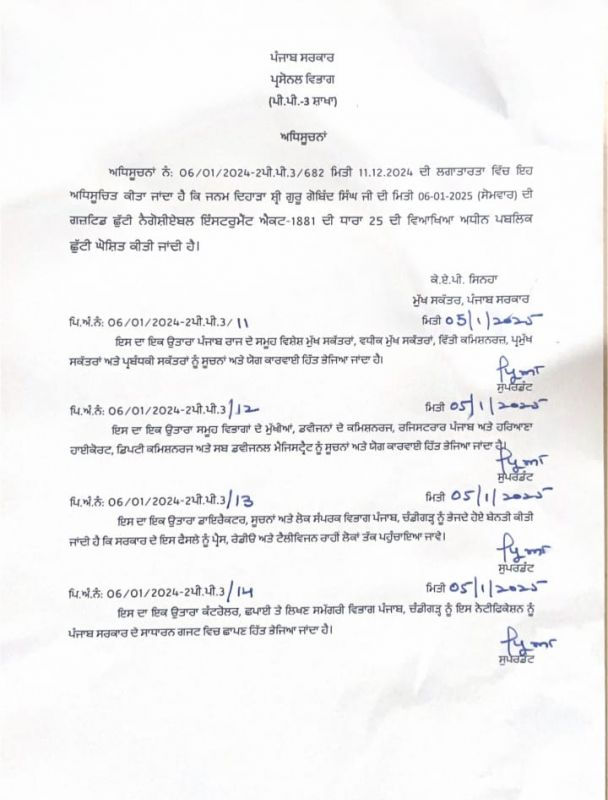 ਪੰਜਾਬ ਸਰਕਾਰ
ਪ੍ਰਸੋਨਲ ਵਿਭਾਗ
(ਪੀ.ਪੀ.-3 ਸ਼ਾਖਾ)
ਅਧਿਸੂਚਨਾਂ
ਅਧਿਸੂਚਨਾਂ ਨੰ: 06/01/2024-2ਪੀ.ਪੀ.3/682 ਮਿਤੀ 11.12.2024 ਦੀ ਲਗਾਤਾਰਤਾ ਵਿੱਚ ਇਹ
ਅਧਿਸੂਚਿਤ ਕੀਤਾ ਜਾਂਦਾ ਹੈ ਕਿ ਜਨਮ ਦਿਹਾੜਾ ਸ਼੍ਰੀ ਗੁਰੂ ਗੋਬਿੰਦ ਸਿੰਘ ਜੀ ਦੀ ਮਿਤੀ 06-01-2025 (ਸੋਮਵਾਰ) ਦੀ
ਗਜ਼ਟਿਡ ਛੁੱਟੀ ਨੈਗੋਸ਼ੀਏਬਲ ਇੰਸਟਰੂਮੈਂਟ ਐਕਟ-1881 ਦੀ ਧਾਰਾ 25 ਦੀ ਵਿਆਖਿਆ ਅਧੀਨ ਪਬਲਿਕ
ਛੁੱਟੀ ਘੋਸ਼ਿਤ ਕੀਤੀ ਜਾਂਦੀ ਹੈ।
ਕੇ.ਏ.ਪੀ. ਸਿਨਹਾ
ਮੁੱਖ ਸਕੱਤਰ, ਪੰਜਾਬ ਸਰਕਾਰ
ਪਿ.ਅੰ.ਨੰ: 06/01/2024-2ਪੀ.ਪੀ.3/11 ਮਿਤੀ 05/1/2025
ਇਸ ਦਾ ਇਕ ਉਤਾਰਾ ਪੰਜਾਬ ਰਾਜ ਦੇ ਸਮੂਹ ਵਿਸ਼ੇਸ਼ ਮੁੱਖ ਸਕੱਤਰਾਂ, ਵਧੀਕ ਮੁੱਖ ਸਕੱਤਰਾਂ, ਵਿੱਤੀ ਕਮਿਸ਼ਨਰਜ਼, ਪ੍ਰਮੁੱਖ
ਸਕੱਤਰਾਂ ਅਤੇ ਪ੍ਰਬੰਧਕੀ ਸਕੱਤਰਾਂ ਨੂੰ ਸੂਚਨਾਂ ਅਤੇ ਯੋਗ ਕਾਰਵਾਈ ਹਿੱਤ ਭੇਜਿਆ ਜਾਂਦਾ ਹੈ।
ਸੁਪਰਡੰਟ
ਪਿ.ਅੰ.ਨੰ: 06/01/2024-2ਪੀ.ਪੀ.3/12 ਮਿਤੀ 05/1/2025
ਇਸ ਦਾ ਇਕ ਉਤਾਰਾ ਸਮੂਹ ਵਿਭਾਗਾਂ ਦੇ ਮੁੱਖੀਆਂ, ਡਵੀਜਨਾਂ ਦੇ ਕਮਿਸ਼ਨਰਜ, ਰਜਿਸਟਰਾਰ ਪੰਜਾਬ ਅਤੇ ਹਰਿਆਣਾ
ਹਾਈਕੋਰਟ, ਡਿਪਟੀ ਕਮਿਸ਼ਨਰਜ ਅਤੇ ਸਬ ਡਵੀਜਨਲ ਮੈਜਿਸਟ੍ਰੈਟ ਨੂੰ ਸੂਚਨਾਂ ਅਤੇ ਯੋਗ ਕਾਰਵਾਈ ਹਿੱਤ ਭੇਜਿਆ ਜਾਂਦਾ ਹੈ।
ਸੁਪਰਡੰਟ
ਪਿ.ਅੰ.ਨੰ: 06/01/2024-2ਪੀ.ਪੀ.3/13 ਮਿਤੀ 05/1/2025
ਇਸ ਦਾ ਇਕ ਉਤਾਰਾ ਡਾਇਰੈਕਟਰ, ਸੂਚਨਾਂ ਅਤੇ ਲੋਕ ਸੰਪਰਕ ਵਿਭਾਗ ਪੰਜਾਬ, ਚੰਡੀਗੜ੍ਹ ਨੂੰ ਭੇਜਦੇ ਹੋਏ ਬੇਨਤੀ ਕੀਤੀ
ਜਾਂਦੀ ਹੈ ਕਿ ਸਰਕਾਰ ਦੇ ਇਸ ਫੈਸਲੇ ਨੂੰ ਪ੍ਰੈਸ, ਰੇਡੀਓ ਅਤੇ ਟੈਲੀਵਿਜਨ ਰਾਹੀਂ ਲੋਕਾਂ ਤੱਕ ਪਹੁੰਚਾਇਆ ਜਾਵੇ।
ਸੁਪਰਡੰਟ
ਪਿ.ਅੰ.ਨੰ: 06/01/2024-2ਪੀ.ਪੀ.3/14 ਮਿਤੀ 05/1/2025
ਇਸ ਦਾ ਇਕ ਉਤਾਰਾ ਕੰਟਰੋਲਰ, ਛਪਾਈ ਤੇ ਲਿਖਣ ਸਮੱਗਰੀ ਵਿਭਾਗ ਪੰਜਾਬ, ਚੰਡੀਗੜ੍ਹ ਨੂੰ ਇਸ ਨੋਟੀਫਿਕੇਸ਼ਨ ਨੂੰ
ਪੰਜਾਬ ਸਰਕਾਰ ਦੇ ਸਾਧਾਰਨ ਗਜਟ ਵਿਚ ਛਾਪਣ ਹਿੱਤ ਭੇਜਿਆ ਜਾਂਦਾ ਹੈ।
ਸੁਪਰਡੰਟ